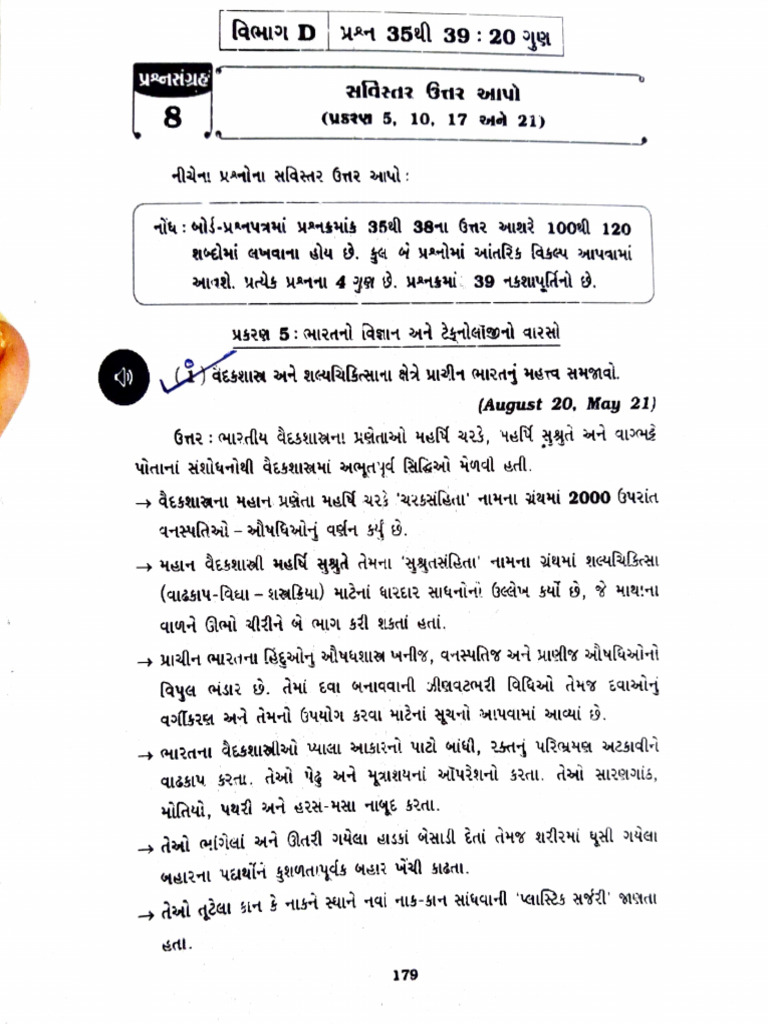 વિભાગ D | પ્રશ્ન 35થી 39 : 20 ગુણ
પ્રશ્નસંગ્રહ
8
સવિસ્તર ઉત્તર આપો
(પ્રકરણ 5, 10, 17 અને 21)
નીચેના પ્રશ્નોના સવિસ્તર ઉત્તર આપો :
નોંધ : બોર્ડ-પ્રશ્નપત્રમાં પ્રશ્નક્રમાંક 35થી 38ના ઉત્તર આશરે 100થી 120
શબ્દોમાં લખવાના હોય છે. કુલ બે પ્રશ્નોમાં આંતરિક વિકલ્પ આપવામાં
આવશે. પ્રત્યેક પ્રશ્નના 4 ગુણ છે. પ્રશ્નક્રમાં 39 નકશાપૂર્તિનો છે.
પ્રકરણ 5 : ભારતનો વિજ્ઞાન અને ટેક્નોલૉજીનો વારસો
(1) વૈદકશાસ્ત્ર અને શલ્યચિકિત્સાના ક્ષેત્રે પ્રાચીન ભારતનું મહત્ત્વ સમજાવો.
(August 20, May 21)
ઉત્તર : ભારતીય વૈદકશાસ્ત્રના પ્રણેતાઓ મહર્ષિ ચરકે, મહર્ષિ સુશ્રુતે અને વાગ્ભટ્ટે
પોતાનાં સંશોધનોથી વૈદકશાસ્ત્રમાં અભૂતપૂર્વ સિદ્ધિઓ મેળવી હતી.
→ વૈદકશાસ્ત્રના મહાન પ્રણેતા મહર્ષિ ચરકે ‘ચરકસંહિતા’ નામના ગ્રંથમાં 2000 ઉપરાંત
વનસ્પતિઓ – ઔષધિઓનું વર્ણન કર્યું છે.
→ મહાન વૈદકશાસ્ત્રી મહર્ષિ સુશ્રુતે તેમના ‘સુશ્રુતસંહિતા’ નામના ગ્રંથમાં શલ્યચિકિત્સા
(વાઢકાપ-વિદ્યા – શસ્ત્રક્રિયા) માટેનાં ધારદાર સાધનોનો ઉલ્લેખ કર્યો છે, જે માથાના
વાળને ઊભો ચીરીને બે ભાગ કરી શકતાં હતાં.
→ પ્રાચીન ભારતના હિંદુઓનું ઔષધશાસ્ત્ર ખનીજ, વનસ્પતિજ અને પ્રાણીજ ઔષધિઓનો
વિપુલ ભંડાર છે. તેમાં દવા બનાવવાની ઝીણવટભરી વિધિઓ તેમજ દવાઓનું
વર્ગીકરણ અને તેમનો ઉપયોગ કરવા માટેનાં સૂચનો આપવામાં આવ્યાં છે.
→ ભારતના વૈદકશાસ્ત્રીઓ પ્યાલા આકારનો પાટો બાંધી, રક્તનું પરિભ્રમણ અટકાવીને
વાઢકાપ કરતા. તેઓ પેઢુ અને મૂત્રાશયનાં ઑપરેશનો કરતા. તેઓ સારણગાંઠ,
મોતિયો, પથરી અને હરસ-મસા નાબૂદ કરતા.
→ તેઓ ભાંગેલાં અને ઊતરી ગયેલા હાડકાં બેસાડી દેતાં તેમજ શરીરમાં ઘૂસી ગયેલા
બહારના પદાર્થોને કુશળતાપૂર્વક બહાર ખેંચી કાઢતા.
→ તેઓ તૂટેલા કાન કે નાકને સ્થાને નવાં નાક-કાન સાંધવાની ‘પ્લાસ્ટિક સર્જરી’ જાણતા
હતા.
179